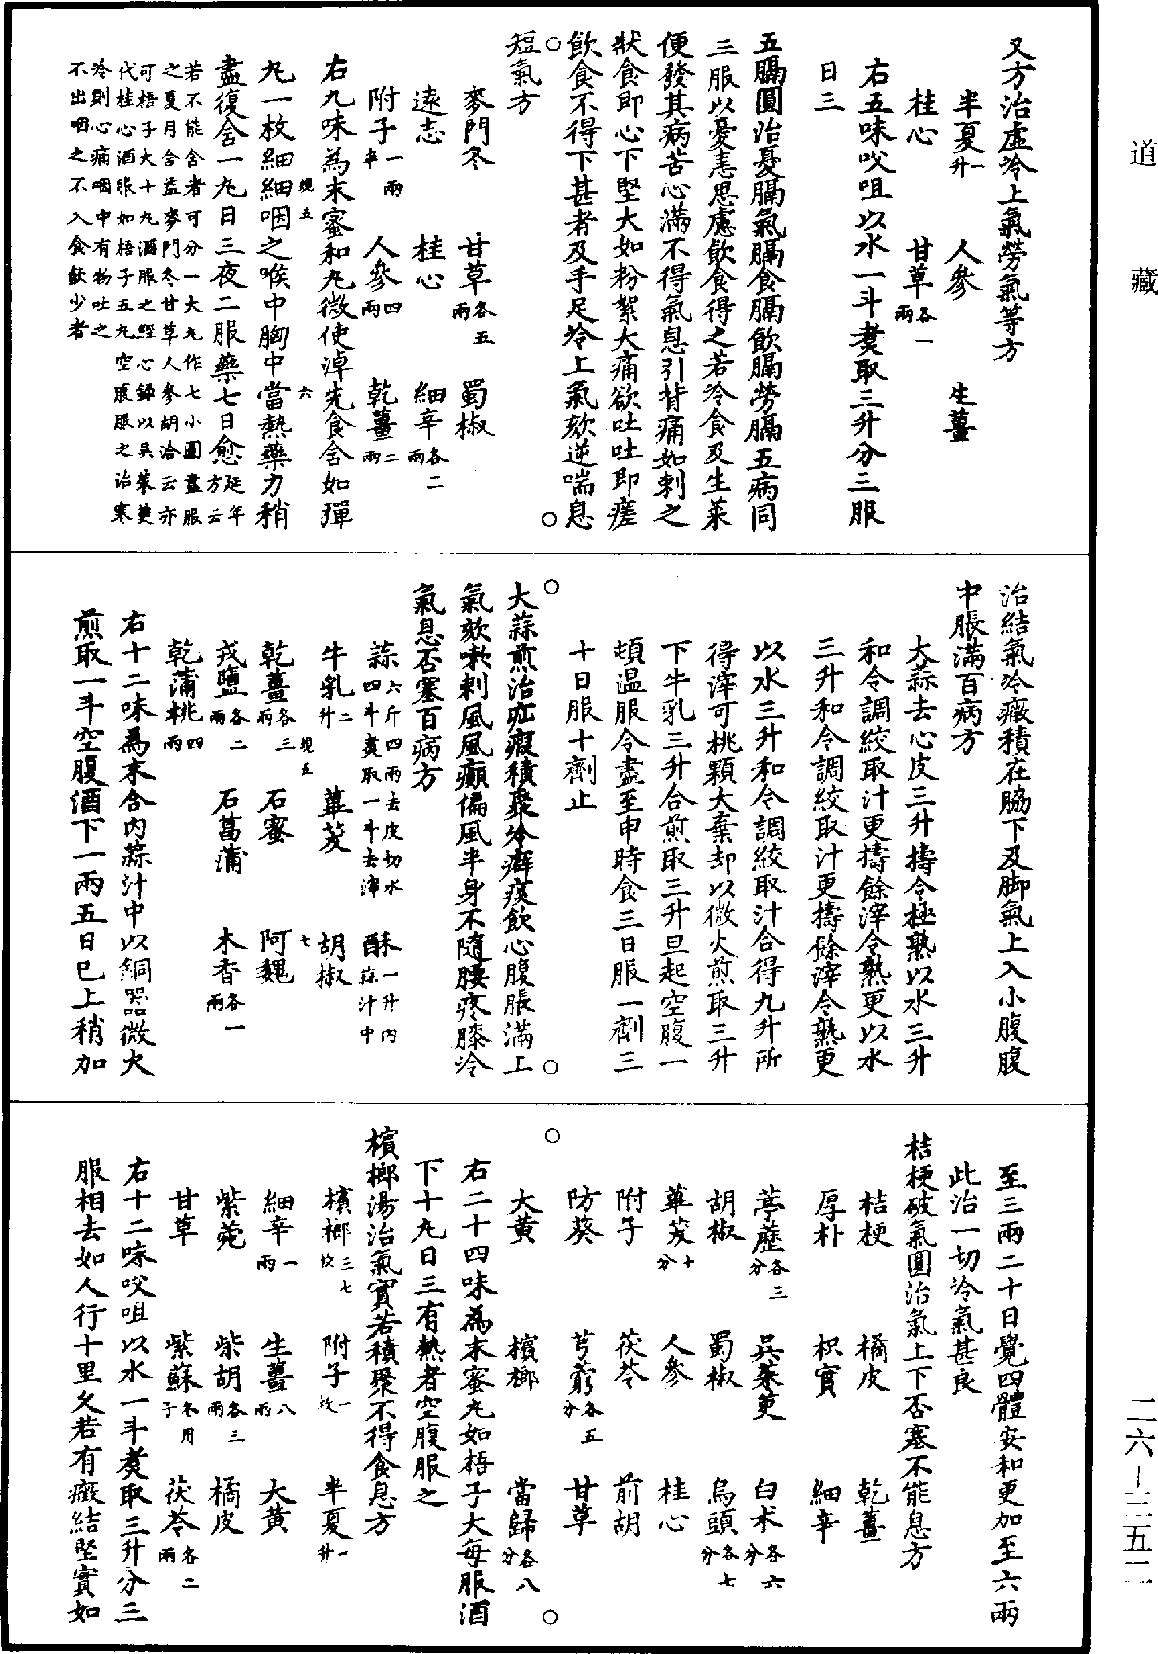 道藏
又方治虛冷上氣勞氣等方
半夏一升 人參 生薑
桂心 甘草各一兩
右五味㕮咀以水一斗煑取三升分三服
日三
五膈圓治憂膈氣膈食膈飲膈勞膈五病同
三服以憂恚思慮飲食得之若冷食及生菜
便發其病苦心滿不得氣息引背痛如刺之
狀食即心下堅大如粉絮大痛欲吐吐即瘥
飲食不得下甚者及手足冷上氣欬逆喘息
短氣方
麥門冬 甘草各五兩 蜀椒
遠志 桂心 細辛各二兩
附子一兩半 人參四兩 乾薑二兩
右九味為末蜜和丸微使淖先食含如彈
丸一枚細細咽之喉中胸中當熱藥力稍
覡五 六
盡復含一丸日三夜二服藥七日愈延年方云
若不能含者可分一大丸作七小圓盡服
之夏月含益麥門冬甘草人參胡洽云亦
可梧子大十丸酒服之經心錄以吳茱萸
代桂心酒服如梧子五丸空腹服之治寒
冷則心痛咽中有物吐之
不出咽之不入食飲少者
治結氣冷癥積在脇下及脚氣上入小腹腹
中脹滿百病方
大蒜去心皮三升擣令極熟以水三升
和令調絞取汁更擣餘滓令熟更以水
三升和令調絞取汁更擣餘滓令熟更
以水三升和令調絞取汁合得九升所
得滓可桃顆大棄却以微火煎取三升
下牛乳三升合煎取三升旦起空腹一
頓溫服令盡至申時食三日服一劑三
十日服十劑止
大蒜煎治疝瘕積聚冷癖痰飲心腹脹滿上
氣欬嗽刺風風癲偏風半身不隨腰疼膝冷
氣息否塞百病方
蒜六斤四兩去皮切水四斗煑取一斗去滓 酥一升內蒜汁中
牛乳二升 蓽茇 胡椒
乾薑各三兩 石蜜 阿魏
覡五 七
戎鹽各二兩 石菖蒲 木香各一兩
乾蒲桃四兩
右十二味為末合內蒜汁中以銅器微火
煎取一斗空腹酒下一兩五日已上稍加
至三兩二十日覺四體安和更加至六兩
此治一切冷氣甚良
桔梗破氣圓治氣上下否塞不能息方
桔梗 橘皮 乾薑
厚朴 枳實 細辛
葶藶各三分 吳茱萸 白术各六分
胡椒 蜀椒 烏頭各七分
蓽茇十分 人參 桂心
附子 茯苓 前胡
防葵 芎藭各五分 甘草
大黃 檳榔 當歸各八分
右二十四味為末蜜丸如梧子大每服酒
下十丸日三有熱者空腹服之
檳榔湯治氣實若積聚不得食息方
檳榔三七枚 附子一枚 半夏一升
細辛一兩 生薑八兩 大黃
紫菀 柴胡各三兩 橘皮
甘草 紫蘇冬用子 茯苓各二兩
右十二味㕮咀以水一斗煑取三升分三
服相去如人行十里久若有癥結堅實如
二六—三五二